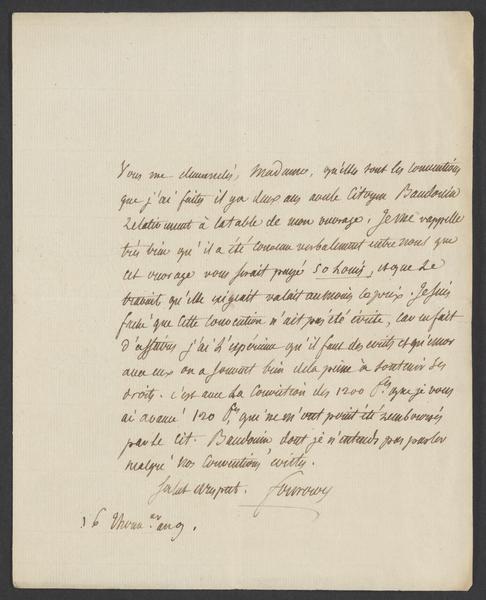 Vous me demandés, Madame, qu'elles sont les conventions
que j'ai faites il y a deux ans avec le Citoyen Baudouin
relativement à la table de mon ouvrage. Je me rappelle
très bien qu'il a été convenu verbalement entre nous que
cet ouvrage vous serait payé 50 Louis, et que le
travail qu'elle exigeait valait au moins ce prix. Je suis
faché que cette convention n'ait pas été écrite, car en fait
d'affaires j'ai l'expérience qu'il faut des ecrits et qu'encor
avec eux on a souvent bien de la peine à soutenir ses
droits. c'est avec la Conviction des 1200 que je vous
ai avancé 120 qui ne m'ont point été remboursés
par le Cit. Baudouin dont je n'entends pas parler
malgré nos conventions écrites.
Salut et respect. Fourcroy
16 an 9.